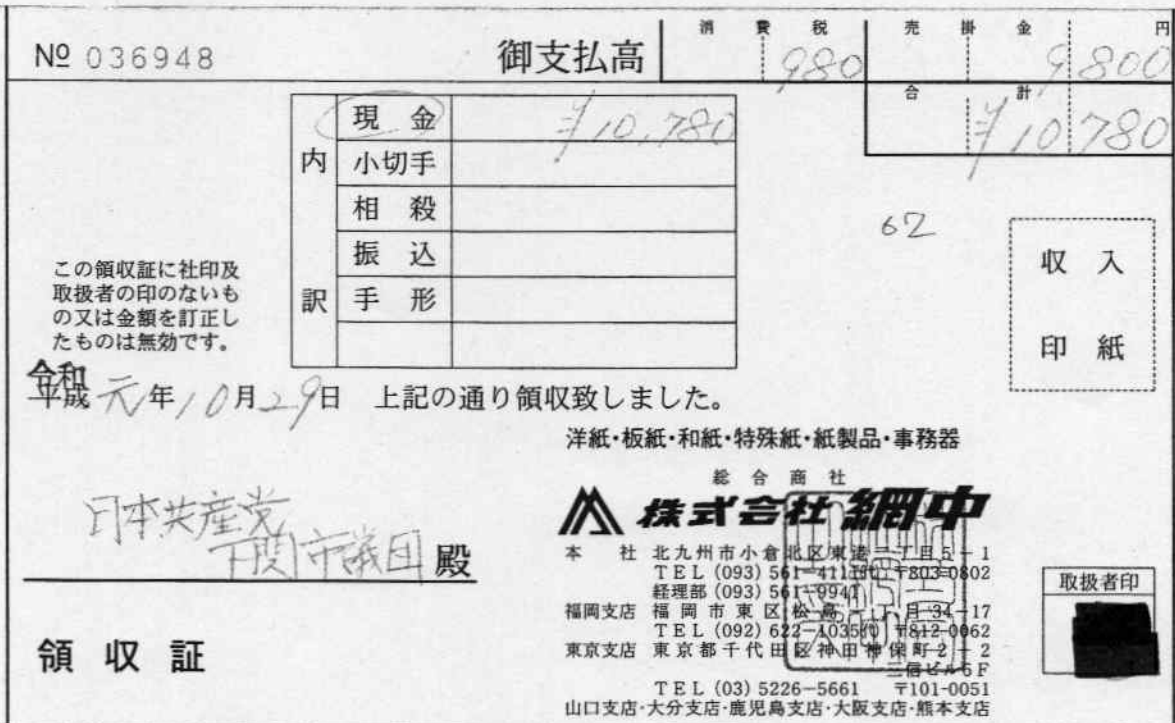 № 036948 御支払高 消費税 980 売掛金 円 9800
合計 ¥10780
内訳
現金 ¥10,780
小切手
相殺
振込
手形
62
収入
印紙
この領収証に社印及
取扱者の印のないも
の又は金額を訂正し
たものは無効です。
令和
平成元年10月29日 上記の通り領収致しました。
洋紙・板紙・和紙・特殊紙・紙製品・事務器
総合商社
株式会社網中
日本共産党
下関市議団 殿
領収証
本社 北九州市小倉北区東港一丁目5-1
TEL (093) 561-4111代 〒803-0802
経理部 (093) 561-9941
福岡支店 福岡市東区松島 丁目34-17
TEL (092) 622-1035代 〒812-0062
東京支店 東京都千代田区神田神保町2-2
三信ビル6F
TEL (03) 5226-5661 〒101-0051
山口支店・大分支店・鹿児島支店・大阪支店・熊本支店
取扱者印